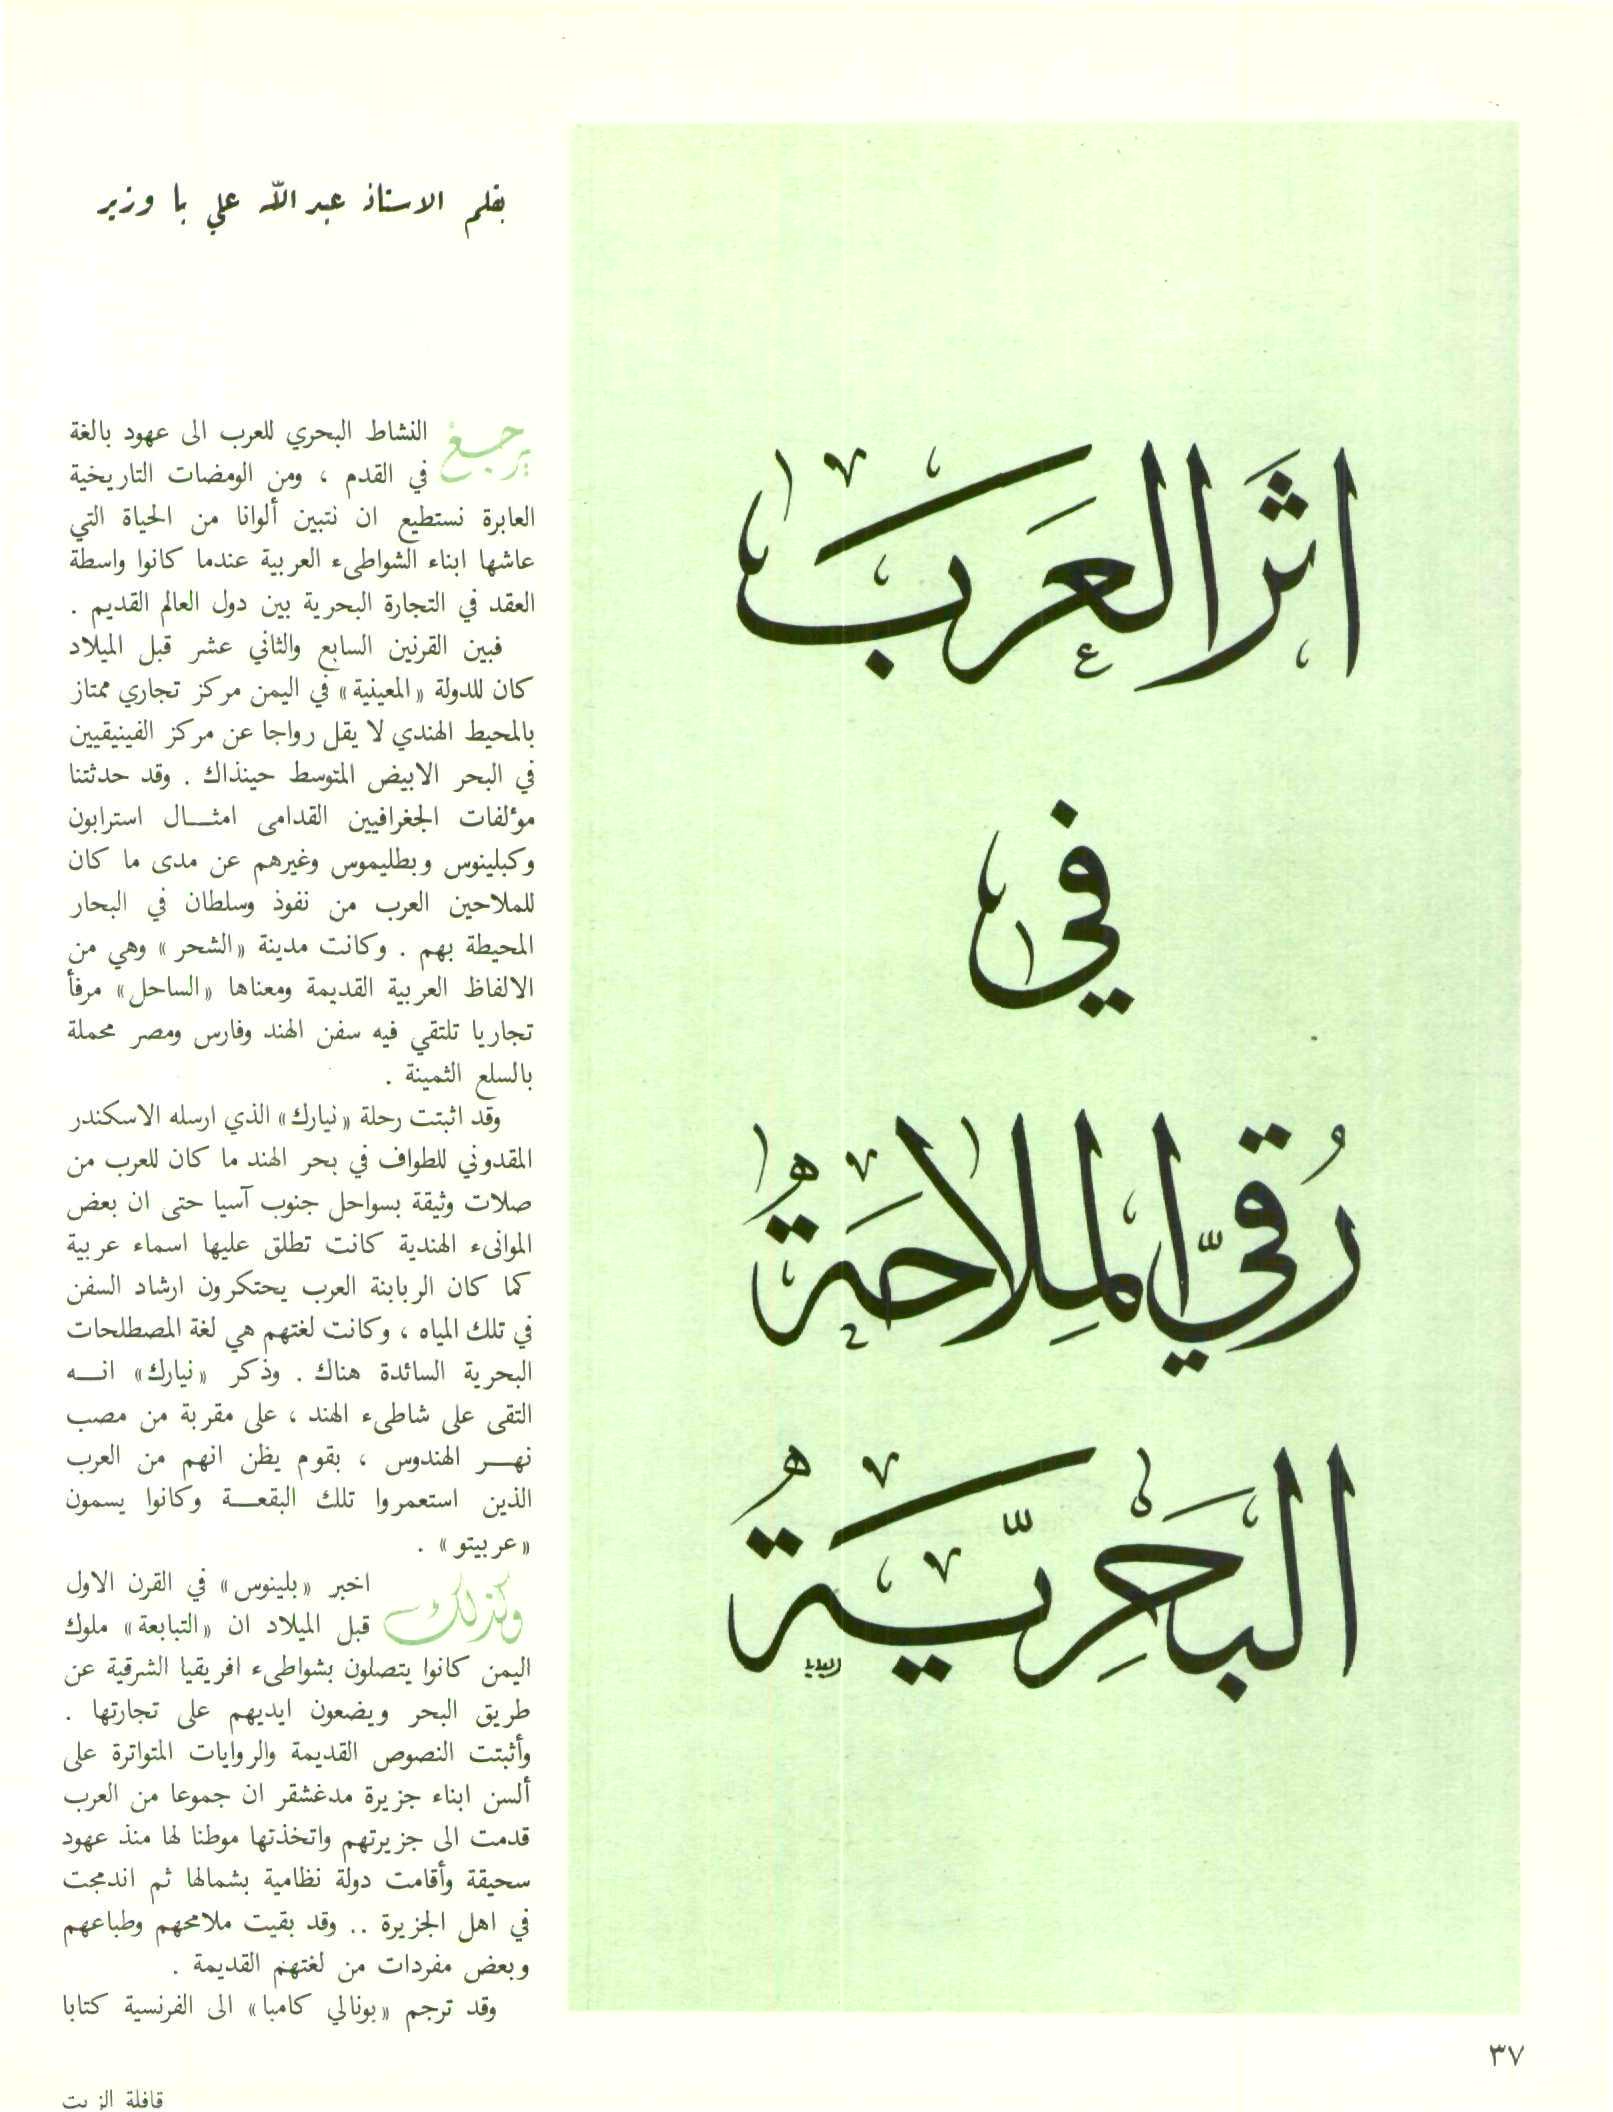 اثر العرب
في
رقي الملاحة
البحرية
بقلم الاستاذ عبد الله علي با وزير
يرجع النشاط البحري للعرب الى عهود بالغة
في القدم ، ومن الومضات التاريخية
العابرة نستطيع ان نتبين ألوانا من الحياة التي
عاشها ابناء الشواطىء العربية عندما كانوا واسطة
العقد في التجارة البحرية بين دول العالم القديم .
فبين القرنين السابع والثاني عشر قبل الميلاد
كان للدولة «المعينية» في اليمن مركز تجاري ممتاز
بالمحيط الهندي لا يقل رواجا عن مركز الفينيقيين
في البحر الابيض المتوسط حينذاك . وقد حدثتنا
مؤلفات الجغرافيين القدامى امثال استرابون
وكبلينوس وبطليموس وغيرهم عن مدى ما كان
للملاحين العرب من نفوذ وسلطان في البحار
المحيطة بهم . وكانت مدينة «الشحر» وهي من
الالفاظ العربية القديمة ومعناها «الساحل» مرفأ
تجاريا تلتقي فيه سفن الهند وفارس ومصر محملة
بالسلع الثمينة .
وقد اثبتت رحلة «نيارك» الذي ارسله الاسكندر
المقدوني للطواف في بحر الهند ما كان للعرب من
صلات وثيقة بسواحل جنوب آسيا حتى ان بعض
الموانىء الهندية كانت تطلق عليها اسماء عربية
كما كان الربابنة العرب يحتكرون ارشاد السفن
في تلك المياه ، وكانت لغتهم هي لغة المصطلحات
البحرية السائدة هناك . وذكر «نيارك» انه
التقى على شاطىء الهند ، على مقربة من مصب
نهر الهندوس ، بقوم يظن انهم من العرب
الذين استعمروا تلك البقعة وكانوا يسمون
«عربيتو» .
وكذلك اخبر «بلينوس» في القرن الاول
قبل الميلاد ان «التبابعة» ملوك
اليمن كانوا يتصلون بشواطىء افريقيا الشرقية عن
طريق البحر ويضعون ايديهم على تجارتها .
وأثبتت النصوص القديمة والروايات المتواترة على
ألسن ابناء جزيرة مدغشقر ان جموعا من العرب
قدمت الى جزيرتهم واتخذتها موطنا لها منذ عهود
سحيقة وأقامت دولة نظامية بشمالها ثم اندمجت
في اهل الجزيرة .. وقد بقيت ملامحهم وطباعهم
وبعض مفردات من لغتهم القديمة .
وقد ترجم «بونالي كامبا» الى الفرنسية كتابا
٣٧
قافلة الزيت